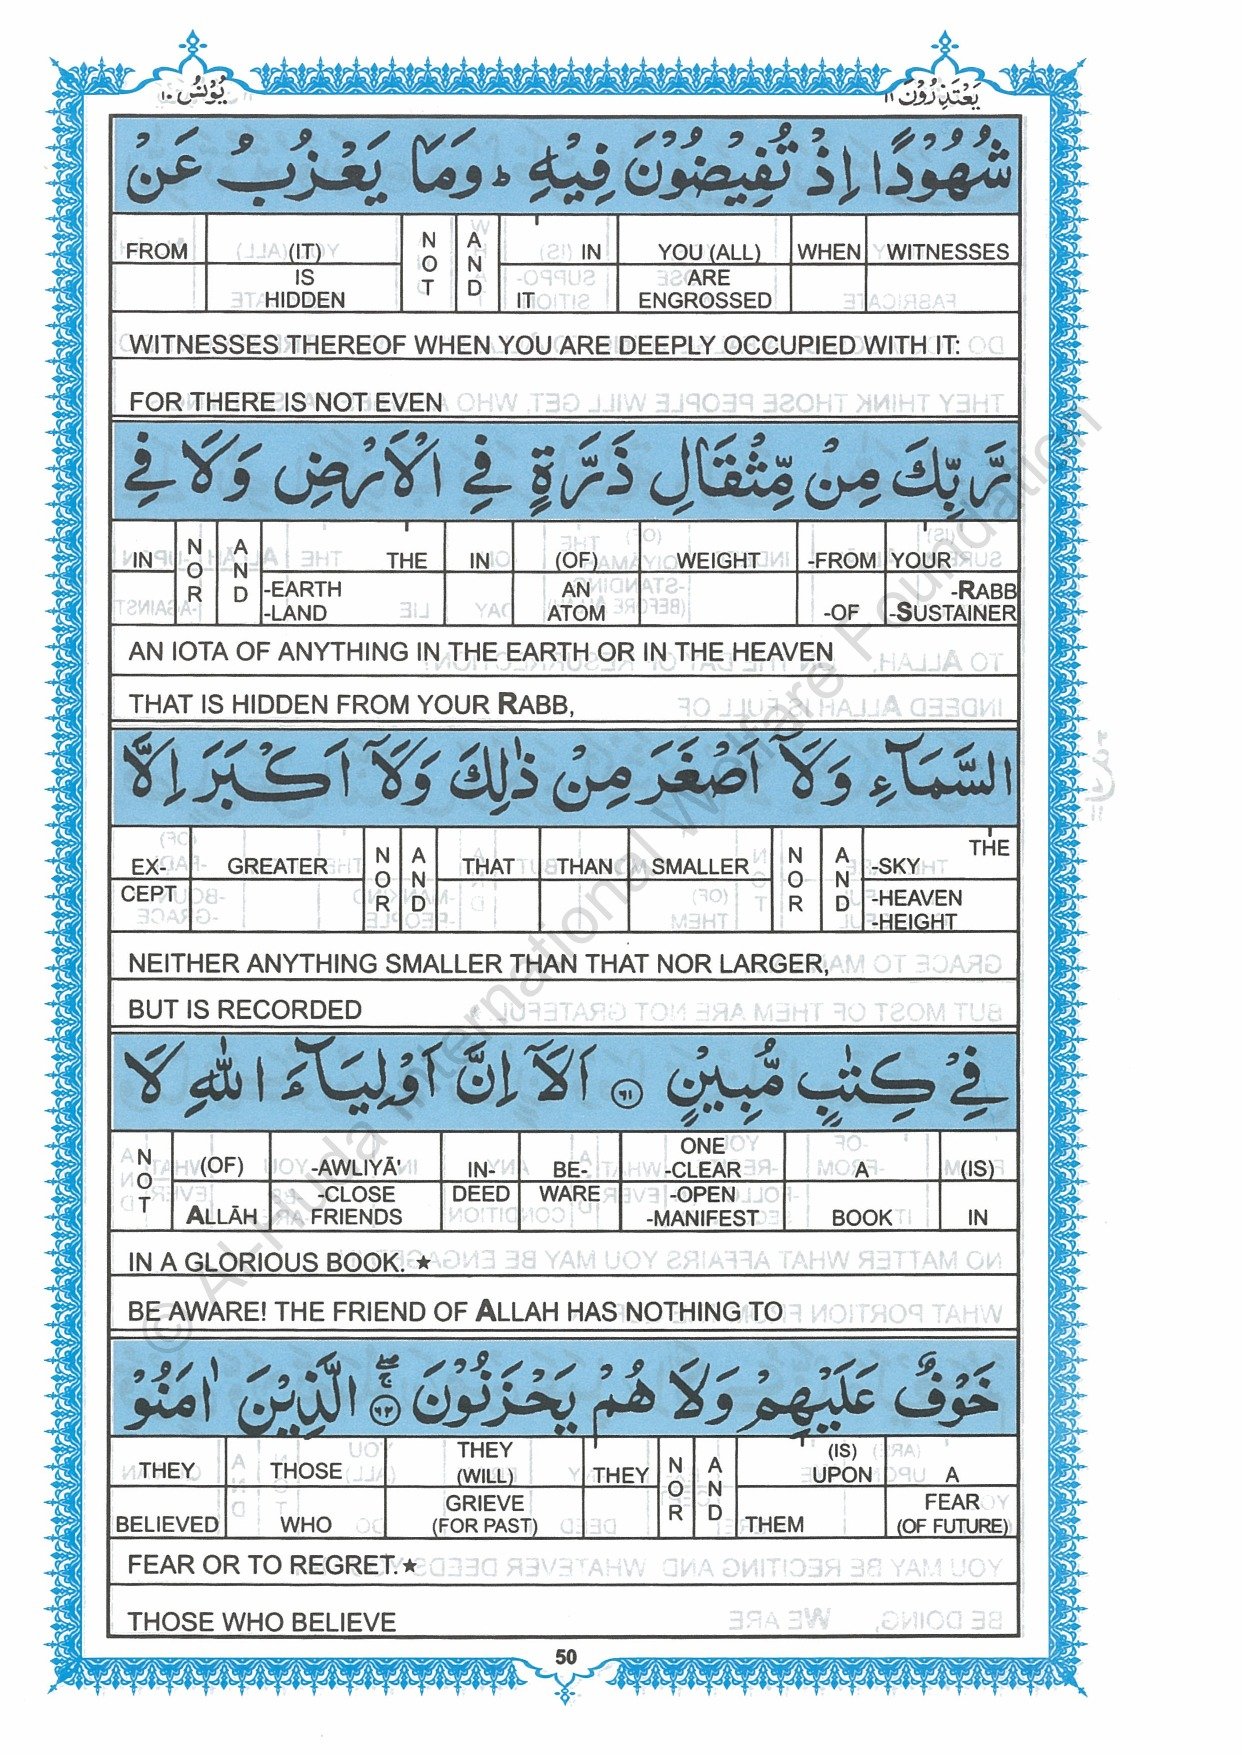 يَعْتَذِرُوْنَ ١١
يُوْنُسُ ١٠
شُهُوْدًا اِذْ تُفِيْضُوْنَ فِيْهِ ؕ وَمَا يَعْزُبُ عَنْ
FROM (IT) NOT AND IN YOU (ALL) WHEN WITNESSES
IS HIDDEN IT ARE ENGROSSED
WITNESSES THEREOF WHEN YOU ARE DEEPLY OCCUPIED WITH IT:
FOR THERE IS NOT EVEN
رَّبِّكَ مِنْ مِّثْقَالِ ذَرَّةٍ فِي الْاَرْضِ وَلَا فِي
IN NOR AND THE IN (OF) WEIGHT -FROM YOUR
-EARTH AN -RABB
-LAND ATOM -OF -SUSTAINER
AN IOTA OF ANYTHING IN THE EARTH OR IN THE HEAVEN
THAT IS HIDDEN FROM YOUR RABB,
السَّمَآءِ وَلَآ اَصْغَرَ مِنْ ذٰلِكَ وَلَآ اَكْبَرَ اِلَّا
THE
EX- GREATER NOR AND THAT THAN SMALLER NOR AND -SKY
CEPT -HEAVEN
-HEIGHT
NEITHER ANYTHING SMALLER THAN THAT NOR LARGER,
BUT IS RECORDED
فِيْ كِتٰبٍ مُّبِيْنٍ ﴿٦١﴾ اَلَآ اِنَّ اَوْلِيَآءَ اللّٰهِ لَا
ONE
NOT (OF) -AWLIYĀ' IN- BE- -CLEAR A (IS)
-CLOSE DEED WARE -OPEN
ALLĀH FRIENDS -MANIFEST BOOK IN
IN A GLORIOUS BOOK. ★
BE AWARE! THE FRIEND OF ALLAH HAS NOTHING TO
خَوْفٌ عَلَيْهِمْ وَلَا هُمْ يَحْزَنُوْنَ ﴿٦٢﴾ ۚۖ الَّذِيْنَ اٰمَنُوْا
THEY (IS)
THEY THOSE (WILL) THEY NOR AND UPON A
GRIEVE FEAR
BELIEVED WHO (FOR PAST) THEM (OF FUTURE)
FEAR OR TO REGRET.★
THOSE WHO BELIEVE
50
© Al-Huda International Welfare Foundation